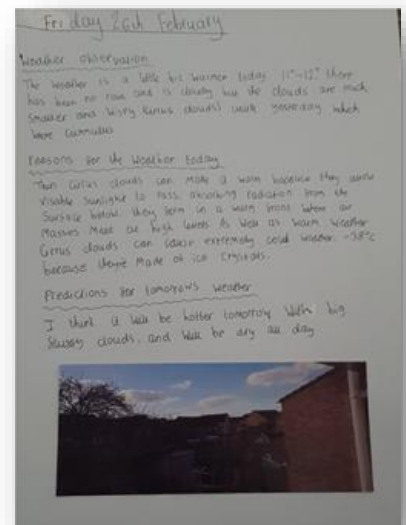 Friday 26th February
Weather observation
The weather is a little bit warmer today 11°-12° there
has been no rain and is cloudy but the clouds are much
smaller and wispy (cirrus clouds) unlike yesterday which
were cummulus
reasons for the weather today
Thin Cirrus clouds can make it warm because they allow
visable sunlight to pass absorbing radiation from the
surface below. they form in a warm front where air
masses meet at high levels As well as warm weather
Cirrus clouds can cause extremely cold weather. -58°c
because theyre made of ice crystals.
Predictions for tomorrows weather
I think it will be hotter tomorrow with big
fluffy clouds, and will be dry all day